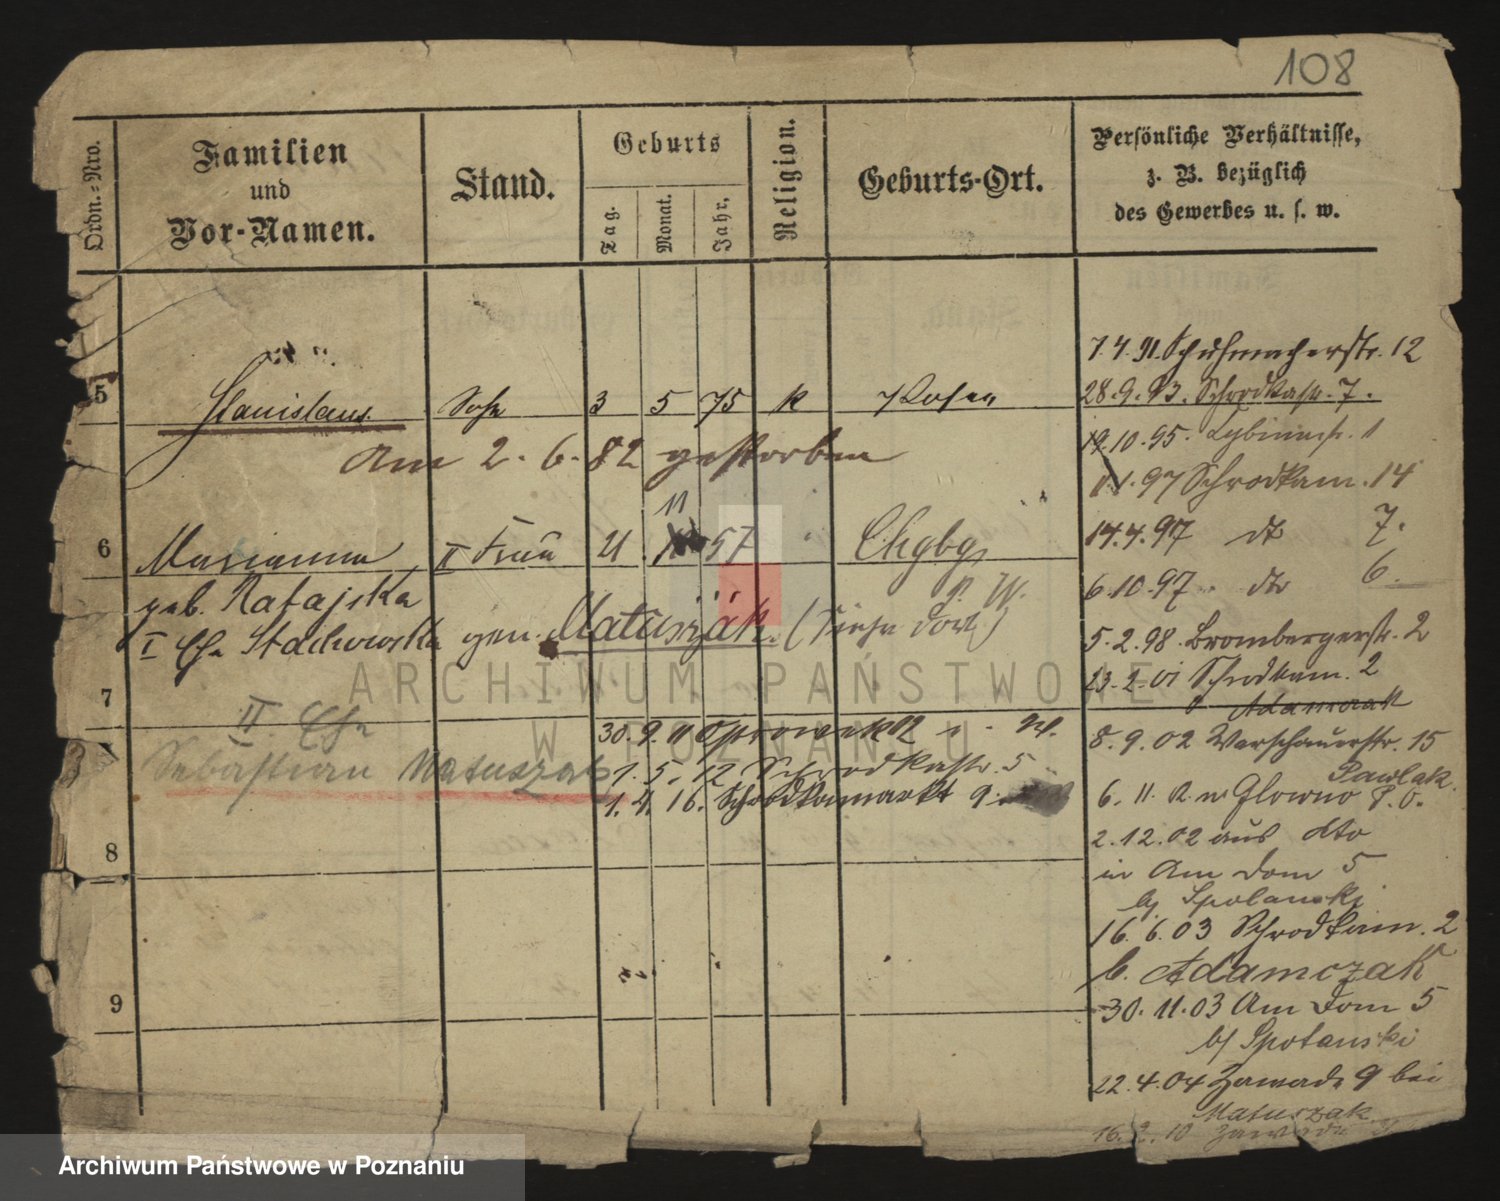 108
Ordn.-Nro.
Familien
und
Vor-Namen.
Stand.
Geburts
Tag.
Monat.
Jahr.
Religion.
Geburts-Ort.
Persönliche Verhältnisse,
z. B. bezüglich
des Gewerbes u. s. w.
5 Stanislaus Sohn 3 5 75 k Posen
Am 2. 6. 82 gestorben
11
6 Marianna II Frau 21 57
geb. Ratajska
I Ehe Stachowska gen. Matuszak (Siehe dort)
7
II. Ehe
Sebastian Matuszak
30. 9. 11
1. 5. 12 Schrodkastr. 5
1. 4. 16. Schrodkamarkt 9
8
9
7.4.91. Schuhmacherstr. 12
28.9.93. Schrodkastr. 7.
19.10.95. 1
1.97 Schrodkam. 14
14.4.97 dto 7.
6.10.97. dto 6.
5.2.98. Brombergerstr. 2
23.2.01 Schrodkam. 2
Adamczak
8.9.02 Warschauerstr. 15
Pawlak
6. 11. n. Glowno P.O.
2.12.02 aus dto
in Am Dom 5
bj Spolanski
16.6.03 Schrodkam. 2
b. Adamczak
30.11.03 Am Dom 5
bj Spolanski
22.4.04 Zawade 9 bei
Matuszak
16. 2. 10 Zawade
ARCHIWUM PAŃSTWOWE
W POZNANIU
Archiwum Państwowe w Poznaniu